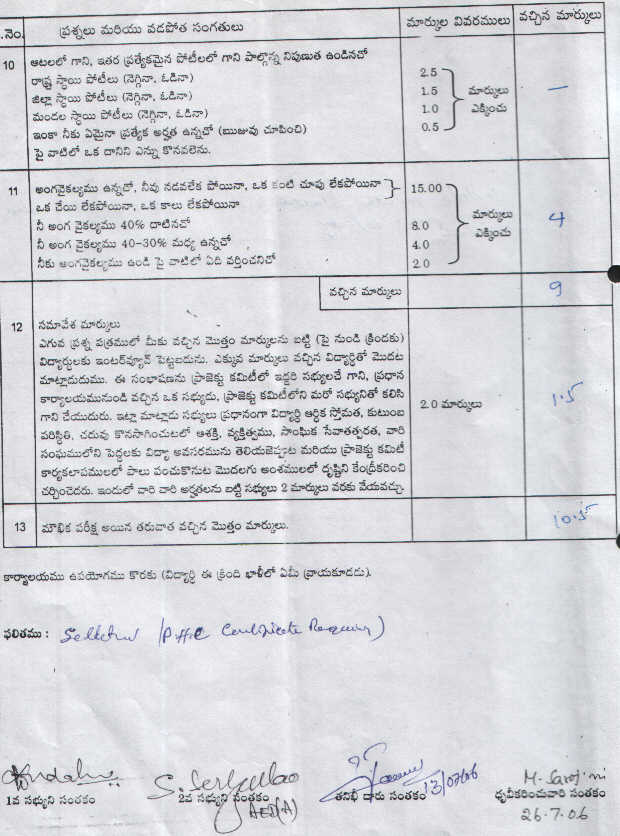 .నెం. ప్రశ్నలు మరియు వడపోత సంగతులు మార్కుల వివరములు వచ్చిన మార్కులు
10 ఆటలలో గాని, ఇతర ప్రత్యేకమైన పోటీలలో గాని పాల్గొన్న నిపుణుత ఉండినచో
రాష్ట్ర స్థాయి పోటీలు (నెగ్గినా, ఓడినా) 2.5
జిల్లా స్థాయి పోటీలు (నెగ్గినా, ఓడినా) 1.5 మార్కులు —
మండల స్థాయి పోటీలు (నెగ్గినా, ఓడినా) 1.0 ఎక్కించు
ఇంకా నీకు ఏమైనా ప్రత్యేక అర్హత ఉన్నచో (ఋజువు చూపించి) 0.5
పై వాటిలో ఒక దానిని ఎన్ను కొనవలెను.
11 అంగవైకల్యము ఉన్నచో, నీవు నడవలేక పోయినా, ఒక కంటి చూపు లేకపోయినా 15.00
ఒక చేయి లేకపోయినా, ఒక కాలు లేకపోయినా
నీ అంగ వైకల్యము 40% దాటినచో 8.0 మార్కులు ఎక్కించు 4
నీ అంగ వైకల్యము 40-30% మధ్య ఉన్నచో 4.0
నీకు అంగవైకల్యము ఉండి పై వాటిలో ఏది వర్తించనిచో 2.0
వచ్చిన మార్కులు 9
12 సమావేశ మార్కులు
ఎగువ ప్రశ్న పత్రములో మీకు వచ్చిన మొత్తం మార్కులను బట్టి (పై నుండి క్రిందకు)
విద్యార్థులకు ఇంటర్‌వ్యూన్ పెట్టబడును. ఎక్కువ మార్కులు వచ్చిన విద్యార్థితో మొదట
మాట్లాడుదుము. ఈ సంభాషణను ప్రాజెక్టు కమిటీలో ఇద్దరి సభ్యులచే గాని, ప్రధాన
కార్యాలయమునుండి వచ్చిన ఒక సభ్యుడు, ప్రాజెక్టు కమిటీలోని మరో సభ్యునితో కలిసి
గాని చేయుదురు. ఇట్లా మాట్లాడు సభ్యులు ప్రధానంగా విద్యార్థి ఆర్థిక స్తోమత, కుటుంబ 2.0 మార్కులు 1.5
పరిస్థితి, చదువు కొనసాగించుటలో ఆశక్తి, వ్యక్తిత్వము, సాంఘిక సేవాతత్పరత, వారి
సంఘములోని పెద్దలకు విద్యా అవసరమును తెలియజెప్పుట మరియు ప్రాజెక్టు కమిటీ
కార్యకలాపములలో పాలు పంచుకొనుట మొదలగు అంశములలో దృష్టిని కేంద్రీకరించి
చర్చించెదరు. ఇందులో వారి వారి అర్హతలను బట్టి సభ్యులు 2 మార్కులు వరకు వేయవచ్చు.
13 మౌఖిక పరీక్ష అయిన తరువాత వచ్చిన మొత్తం మార్కులు. 10.5
కార్యాలయము ఉపయోగము కొరకు (విద్యార్థి ఈ క్రింది ఖాళీలో ఏమీ వ్రాయకూడదు).
ఫలితము : Selected (P.H.C Certificate
13/07/06 M. Sarojini
1వ సభ్యుని సంతకం 2వ సభ్యుని సంతకం తనిఖీ దారు సంతకం ధృవీకరించువారి సంతకం
AED(A) 26.7.06